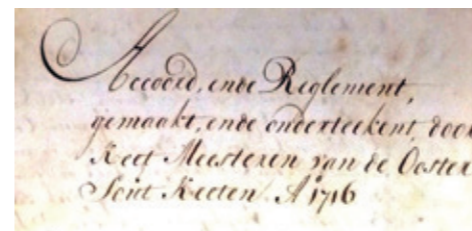 Accoord, ende Reglement,
gemaakt, ende onderteekent, door
Keet Meesteren van de Ooster
Sout Keeten. Aº 1716